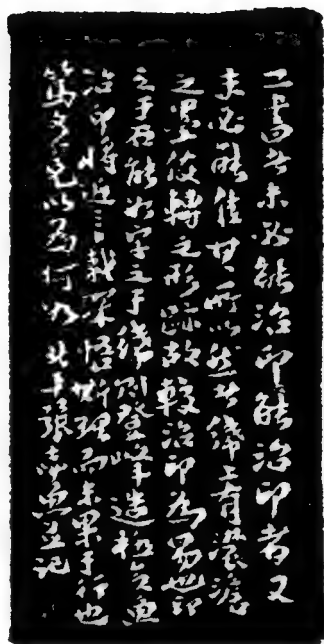 工書者未必能治印能治印者又
未必能佳其所以然者縑上有濃澹
之墨使轉之形跡故較治印為易也印
立于石能如字立于縑則登峰造極矣魚
治印將近三載深悟其理而未果于行也
篤文兄以為何如北平張志魚並記